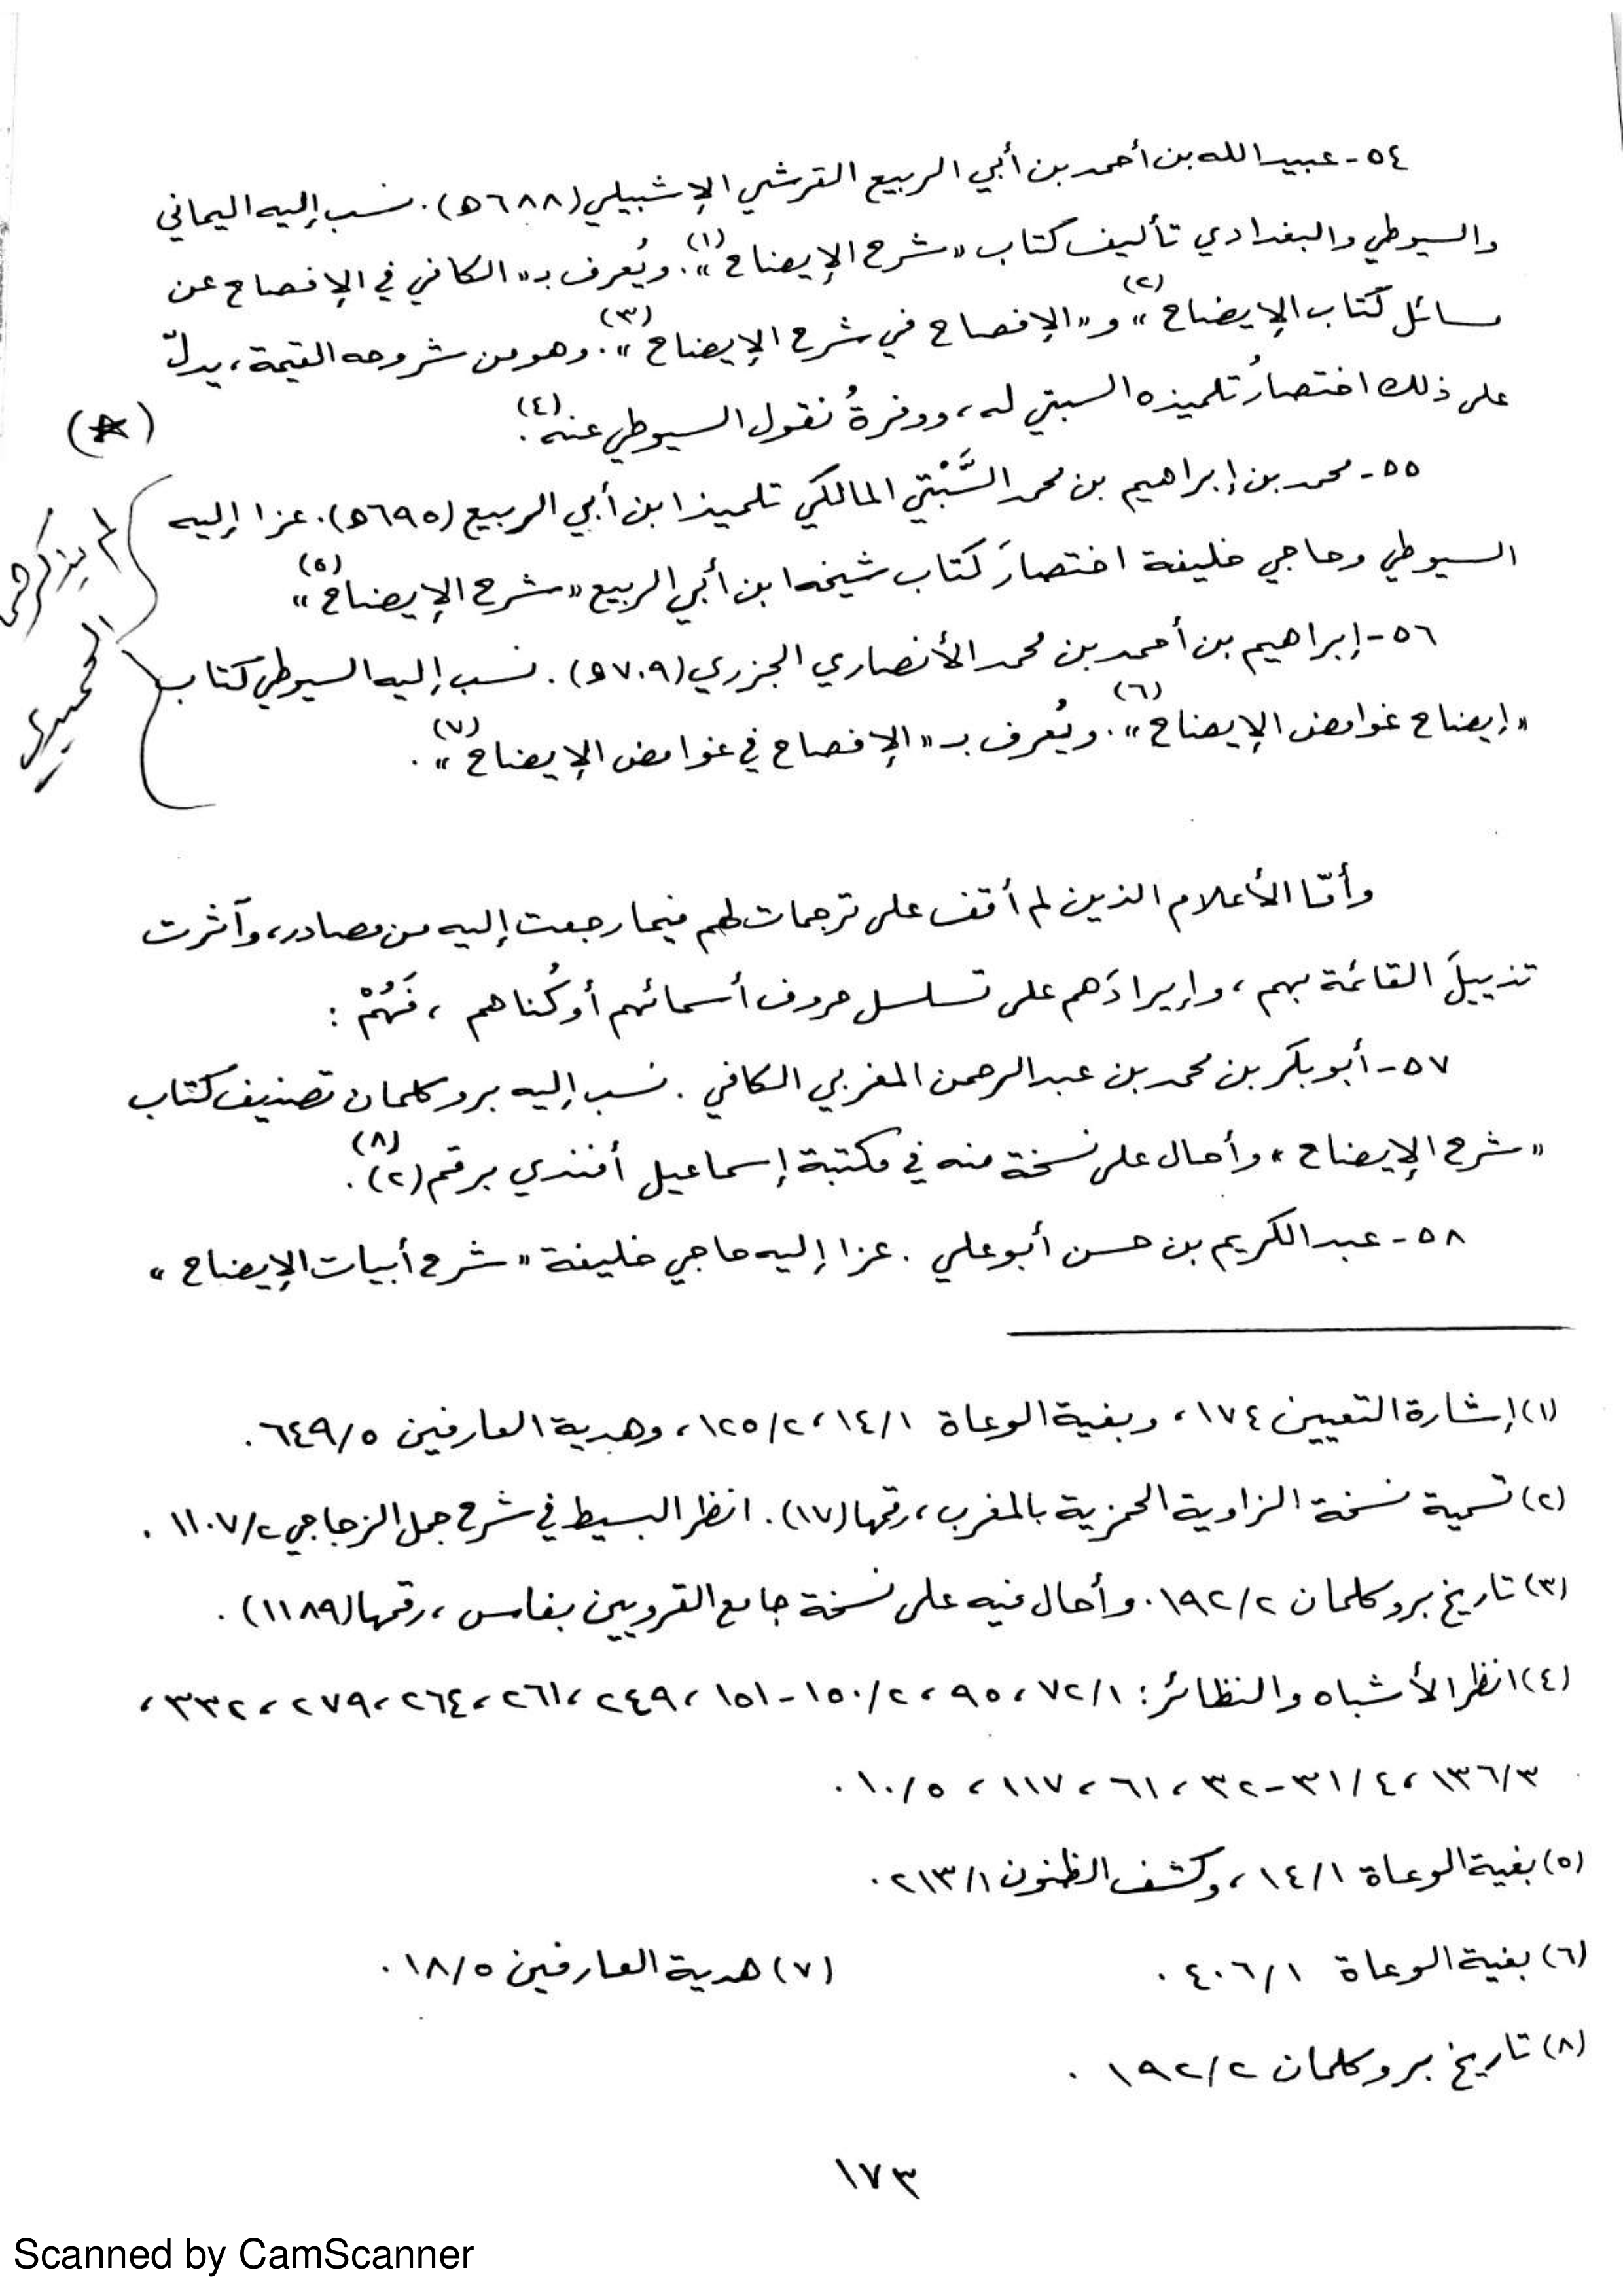 ٥٤- عبيد الله بن أحمد بن أبي الربيع القرشي الإشبيلي (٦٨٨هـ). نسب إليه اليماني
والسيوطي والبغدادي تأليف كتاب «شرح الإيضاح»(١). ويُعرف بـ «الكافي في الإفصاح عن
مسائل كتاب الإيضاح»(٢) و«الإفصاح في شرح الإيضاح»(٣). وهو من شروحه القيمة، يدلّ
على ذلك اختصارُ تلميذه السبتي له، ووفرةُ نقول السيوطي عنه(٤).
(*)
٥٥- محمد بن إبراهيم بن محمد السَّبْتي المالكي تلميذ ابن أبي الربيع (٦٩٥هـ). عزا إليه
السيوطي وحاجي خليفة اختصارَ كتاب شيخه ابن أبي الربيع «شرح الإيضاح»(٥)
٥٦- إبراهيم بن أحمد بن محمد الأنصاري الجزري (٧٠٩هـ). نسب إليه السيوطي كتاب
«إيضاح غوامض الإيضاح»(٦). ويُعرف بـ «الإفصاح في غوامض الإيضاح»(٧).
لم يذكرهم
الحميدي
وأمّا الأعلام الذين لم أقف على ترجمات لهم فيما رجعت إليه من مصادر، وآثرت
تذييلَ القائمة بهم، وإيرادَهم على تسلسل حروف أسمائهم أو كُناهم، فَهُمْ:
٥٧- أبو بكر بن محمد بن عبد الرحمن المغربي الكافي. نسب إليه بروكلمان تصنيف كتاب
«شرح الإيضاح» وأحال على نسخة منه في مكتبة إسماعيل أفندي برقم (٢)(٨).
٥٨- عبد الكريم بن حسن أبو علي. عزا إليه حاجي خليفة «شرح أبيات الإيضاح»
(١) إشارة التعيين ١٧٤، وبغية الوعاة ١/١٤، ٢/١٢٥، وهدية العارفين ٥/٦٤٩.
(٢) تسمية نسخة الزاوية الحمزية بالمغرب، رقمها (١٧). انظر البسيط في شرح جمل الزجاجي ٢/١١٠٧.
(٣) تاريخ بروكلمان ٢/١٩٢. وأحال فيه على نسخة جامع القرويين بفاس، رقمها (١١٨٩).
(٤) انظر الأشباه والنظائر: ١/٧٢، ٩٥، ٢/١٥٠-١٥١، ٢٤٩، ٢٦١، ٢٦٤، ٢٧٩، ٣٣٢،
٣/١٣٦، ٤/٣١-٣٢، ٦١، ١١٧، ٥/١٠.
(٥) بغية الوعاة ١/١٤، وكشف الظنون ١/٢١٣.
(٦) بغية الوعاة ١/٤٠٦. (٧) هدية العارفين ٥/١٨.
(٨) تاريخ بروكلمان ٢/١٩٢.
١٧٣
Scanned by CamScanner